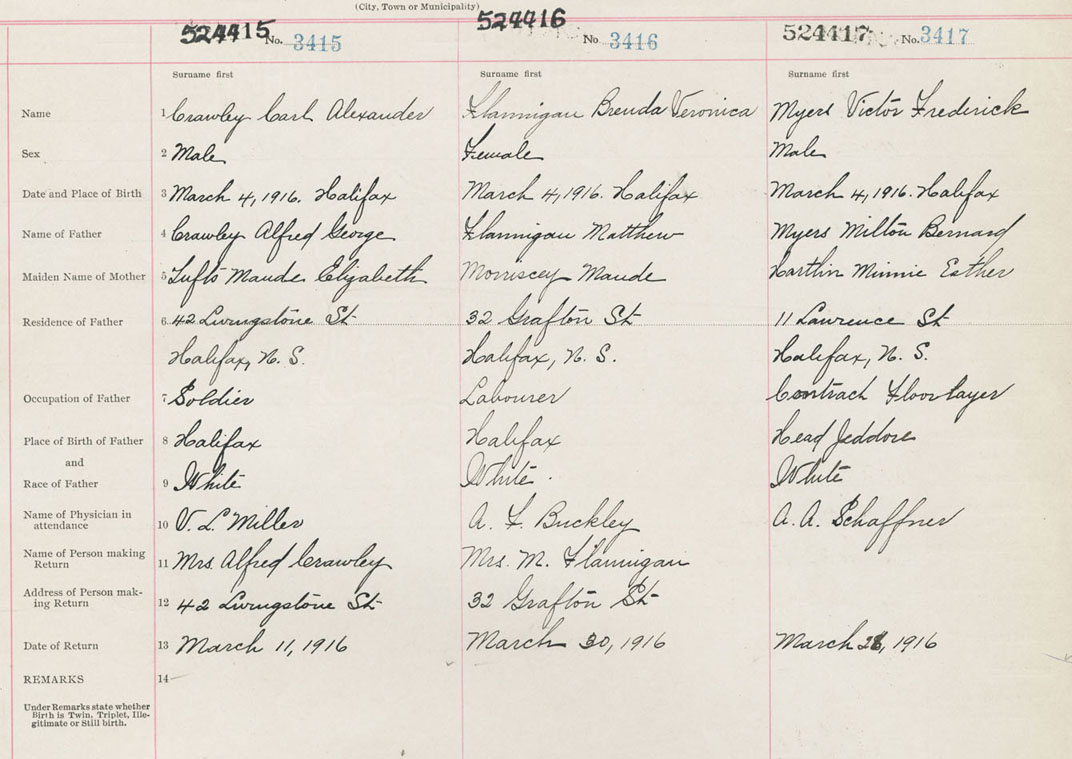 (City, Town or Municipality)
524415 No. 3415 524416 No. 3416 524417 No. 3417
Surname first Surname first Surname first
Name 1 Crawley Carl Alexander Flannigan Brenda Veronica Myers Victor Frederick
Sex 2 Male Female Male
Date and Place of Birth 3 March 4, 1916. Halifax March 4, 1916. Halifax March 4, 1916. Halifax
Name of Father 4 Crawley Alfred George Flannigan Matthew Myers Milton Bernard
Maiden Name of Mother 5 Tufts Maude Elizabeth Morriscey Maude Hartlin Minnie Esther
Residence of Father 6 42 Livingstone St 32 Grafton St 11 Lawrence St
Halifax, N. S. Halifax, N. S. Halifax, N. S.
Occupation of Father 7 Soldier Labourer Contract Floor layer
Place of Birth of Father 8 Halifax Halifax Head Jeddore
and
Race of Father 9 White White White
Name of Physician in
attendance 10 V. L. Miller A. F. Buckley A. A. Schaffner
Name of Person making
Return 11 Mrs. Alfred Crawley Mrs. M. Flannigan
Address of Person mak-
ing Return 12 42 Livingstone St 32 Grafton St
Date of Return 13 March 11, 1916 March 30, 1916 March 28, 1916
REMARKS 14
Under Remarks state whether
Birth is Twin, Triplet, Ille-
gitimate or Still birth.